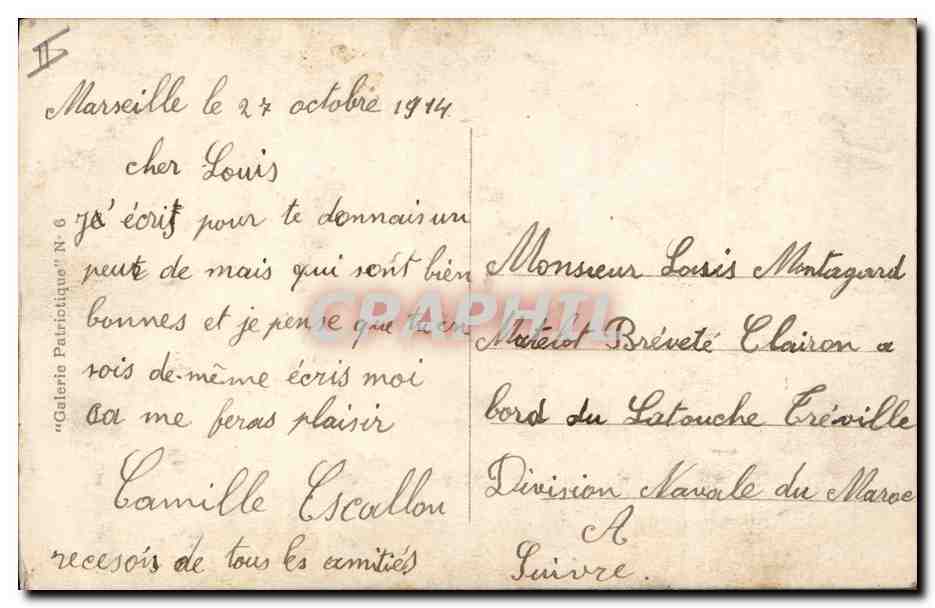 II
Marseille le 27 octobre 1914
cher Louis
j'écrit pour te donnais un
peut de mais qui sont bien
bonnes et je pense que tu en
sois de même écris moi
ca me feras plaisir
Camille Escallon
recesois de tous les amitiés
"Galerie Patriotique" N° 6
Monsieur Louis Montagard
Matelot Bréveté Clairon a
bord du Latouche Tréville
Division Navale du Maroc
A
Suivre.
CRAPHIL